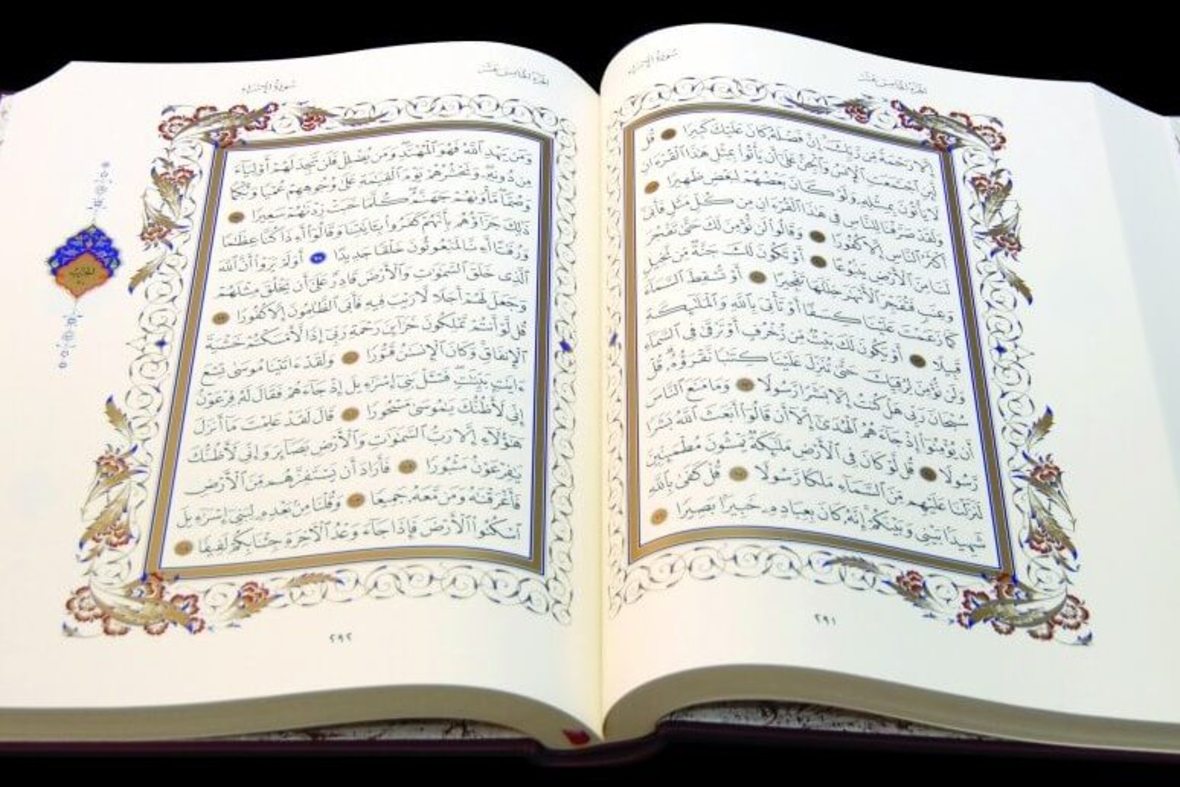 الجزء الخامس عشر
سورة الإسراء
إِلَّا رَحْمَةً مِّن رَّبِّكَ إِنَّ فَضْلَهُ كَانَ عَلَيْكَ كَبِيرًا قُل
لَّئِنِ ٱجْتَمَعَتِ ٱلْإِنسُ وَٱلْجِنُّ عَلَىٰ أَن يَأْتُوا۟ بِمِثْلِ هَٰذَا ٱلْقُرْءَانِ
لَا يَأْتُونَ بِمِثْلِهِ وَلَوْ كَانَ بَعْضُهُمْ لِبَعْضٍ ظَهِيرًا
وَلَقَدْ صَرَّفْنَا لِلنَّاسِ فِى هَٰذَا ٱلْقُرْءَانِ مِن كُلِّ مَثَلٍ فَأَبَىٰٓ
أَكْثَرُ ٱلنَّاسِ إِلَّا كُفُورًا وَقَالُوا۟ لَن نُّؤْمِنَ لَكَ حَتَّىٰ تَفْجُرَ
لَنَا مِنَ ٱلْأَرْضِ يَنۢبُوعًا أَوْ تَكُونَ لَكَ جَنَّةٌ مِّن نَّخِيلٍ
وَعِنَبٍ فَتُفَجِّرَ ٱلْأَنْهَٰرَ خِلَٰلَهَا تَفْجِيرًا أَوْ تُسْقِطَ ٱلسَّمَآءَ
كَمَا زَعَمْتَ عَلَيْنَا كِسَفًا أَوْ تَأْتِىَ بِٱللَّهِ وَٱلْمَلَٰٓئِكَةِ
قَبِيلًا أَوْ يَكُونَ لَكَ بَيْتٌ مِّن زُخْرُفٍ أَوْ تَرْقَىٰ فِى ٱلسَّمَآءِ
وَلَن نُّؤْمِنَ لِرُقِيِّكَ حَتَّىٰ تُنَزِّلَ عَلَيْنَا كِتَٰبًا نَّقْرَؤُهُ قُلْ
سُبْحَانَ رَبِّى هَلْ كُنتُ إِلَّا بَشَرًا رَّسُولًا وَمَا مَنَعَ ٱلنَّاسَ
أَن يُؤْمِنُوٓا۟ إِذْ جَآءَهُمُ ٱلْهُدَىٰٓ إِلَّآ أَن قَالُوٓا۟ أَبَعَثَ ٱللَّهُ بَشَرًا
رَّسُولًا قُل لَّوْ كَانَ فِى ٱلْأَرْضِ مَلَٰٓئِكَةٌ يَمْشُونَ مُطْمَئِنِّينَ
لَنَزَّلْنَا عَلَيْهِم مِّنَ ٱلسَّمَآءِ مَلَكًا رَّسُولًا قُلْ كَفَىٰ بِٱللَّهِ
شَهِيدًۢا بَيْنِى وَبَيْنَكُمْ إِنَّهُ كَانَ بِعِبَادِهِ خَبِيرًۢا بَصِيرًا
٢٩١
الجزء الخامس عشر
سورة الإسراء
وَمَن يَهْدِ ٱللَّهُ فَهُوَ ٱلْمُهْتَدِ وَمَن يُضْلِلْ فَلَن تَجِدَ لَهُمْ أَوْلِيَآءَ
مِن دُونِهِ وَنَحْشُرُهُمْ يَوْمَ ٱلْقِيَٰمَةِ عَلَىٰ وُجُوهِهِمْ عُمْيًا وَبُكْمًا
وَصُمًّا مَّأْوَىٰهُمْ جَهَنَّمُ كُلَّمَا خَبَتْ زِدْنَٰهُمْ سَعِيرًا
ذَٰلِكَ جَزَآؤُهُم بِأَنَّهُمْ كَفَرُوا۟ بِـَٔايَٰتِنَا وَقَالُوٓا۟ أَءِذَا كُنَّا عِظَٰمًا
وَرُفَٰتًا أَءِنَّا لَمَبْعُوثُونَ خَلْقًا جَدِيدًا أَوَلَمْ يَرَوْا۟ أَنَّ ٱللَّهَ
ٱلَّذِى خَلَقَ ٱلسَّمَٰوَٰتِ وَٱلْأَرْضَ قَادِرٌ عَلَىٰٓ أَن يَخْلُقَ مِثْلَهُمْ
وَجَعَلَ لَهُمْ أَجَلًا لَّا رَيْبَ فِيهِ فَأَبَى ٱلظَّٰلِمُونَ إِلَّا كُفُورًا
قُل لَّوْ أَنتُمْ تَمْلِكُونَ خَزَآئِنَ رَحْمَةِ رَبِّىٓ إِذًا لَّأَمْسَكْتُمْ خَشْيَةَ
ٱلْإِنفَاقِ وَكَانَ ٱلْإِنسَٰنُ قَتُورًا وَلَقَدْ ءَاتَيْنَا مُوسَىٰ تِسْعَ
ءَايَٰتٍۭ بَيِّنَٰتٍ فَسْـَٔلْ بَنِىٓ إِسْرَٰٓءِيلَ إِذْ جَآءَهُمْ فَقَالَ لَهُ فِرْعَوْنُ
إِنِّى لَأَظُنُّكَ يَٰمُوسَىٰ مَسْحُورًا قَالَ لَقَدْ عَلِمْتَ مَآ أَنزَلَ
هَٰٓؤُلَآءِ إِلَّا رَبُّ ٱلسَّمَٰوَٰتِ وَٱلْأَرْضِ بَصَآئِرَ وَإِنِّى لَأَظُنُّكَ
يَٰفِرْعَوْنُ مَثْبُورًا فَأَرَادَ أَن يَسْتَفِزَّهُم مِّنَ ٱلْأَرْضِ
فَأَغْرَقْنَٰهُ وَمَن مَّعَهُ جَمِيعًا وَقُلْنَا مِنۢ بَعْدِهِ لِبَنِىٓ إِسْرَٰٓءِيلَ
ٱسْكُنُوا۟ ٱلْأَرْضَ فَإِذَا جَآءَ وَعْدُ ٱلْءَاخِرَةِ جِئْنَا بِكُمْ لَفِيفًا
٢٩٢